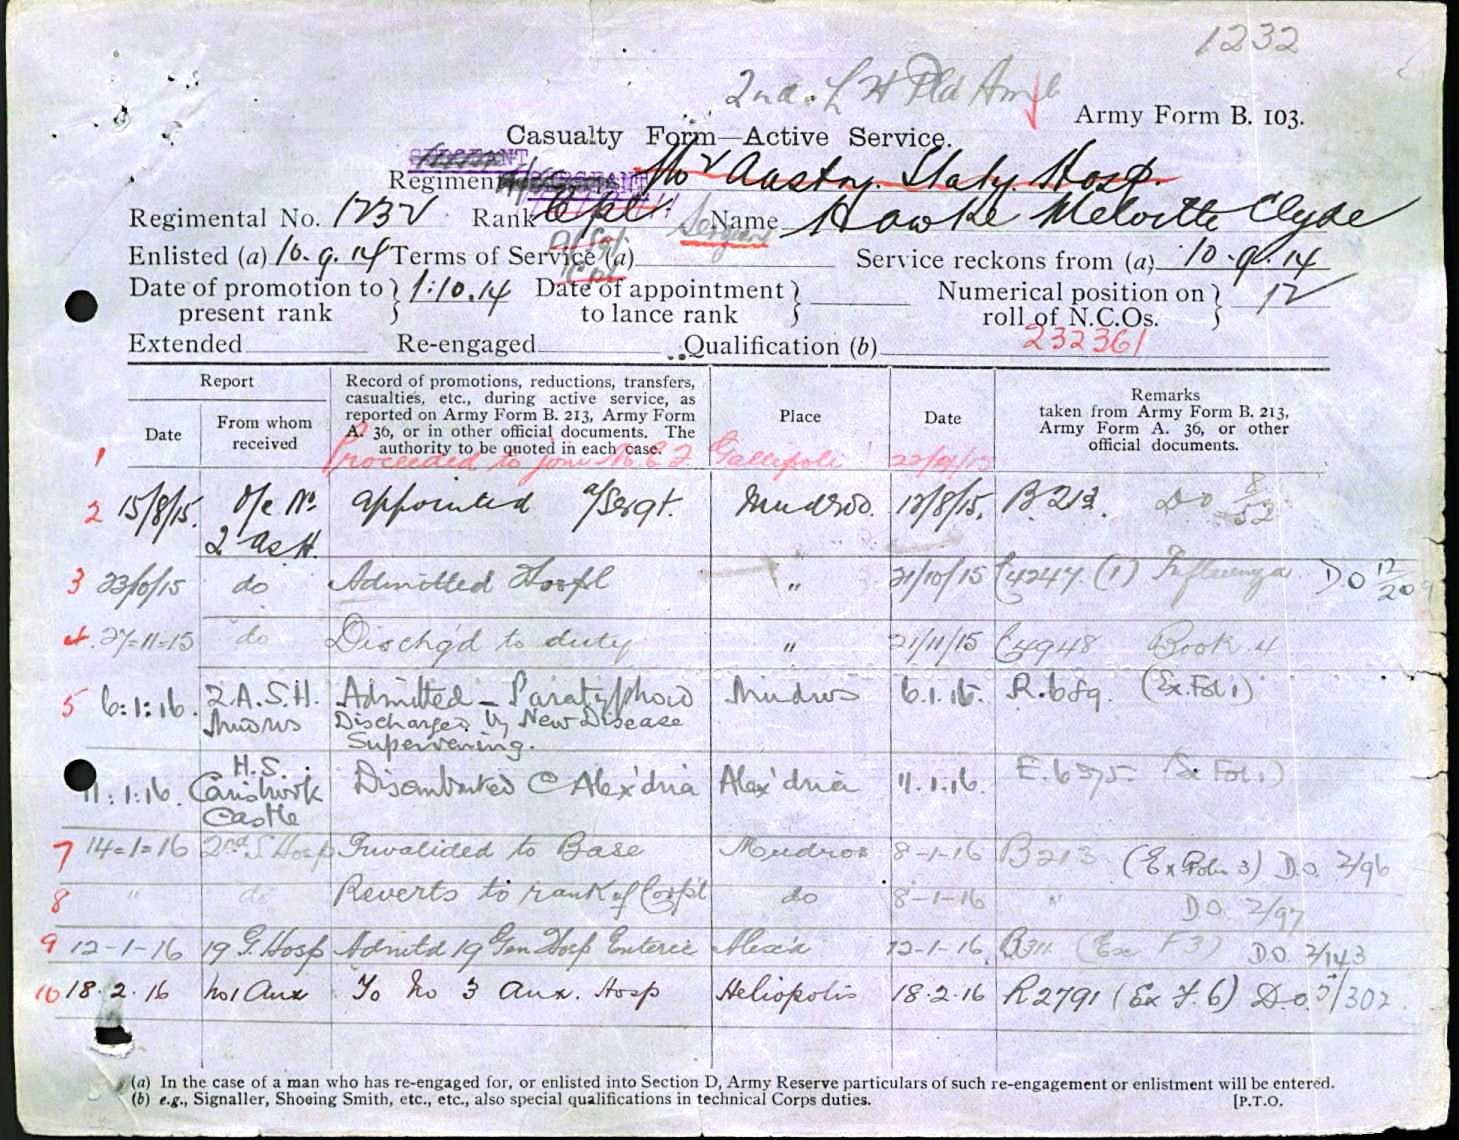 1232
2nd. L H Fld Amb
Army Form B. 103.
Casualty Form—Active Service.
SERGEANT
Regiment No 2 Austn. Staty. Hosp.
Regimental No. 1232 Rank Cpl. Sergeant Name Hawke Melville Clyde
A/Sgt
Enlisted (a) 10.9.14 Terms of Service (a) Service reckons from (a) 10.9.14
Cpl
Date of promotion to present rank } 1.10.14 Date of appointment to lance rank } Numerical position on roll of N.C.Os. } 12
Extended Re-engaged Qualification (b) 232361
Report
Date
From whom received
Record of promotions, reductions, transfers, casualties, etc., during active service, as reported on Army Form B. 213, Army Form A. 36, or in other official documents. The authority to be quoted in each case.
Place
Date
Remarks taken from Army Form B. 213, Army Form A. 36, or other official documents.
1 Proceeded to join M.E.F. Gallipoli
2 15/8/15. O/c No. 2 ASH. appointed a/Sergt. Mudros. B213. DO 8/52
3 do Admitted Hospl " 21/10/15 (1) Influenza DO
4. 27=11=15 do Disch'g'd to duty " 21/11/15 C4948 Book 4
5 6:1:16. 2.A.S.H. Mudros Admitted — Paratyphoid Discharged by New Disease Supervening. Mudros R.689. (Ex.Fol1)
11.1.16. H.S. Carisbrook Castle Disembarked @ Alex'dria Alex'dria 11.1.16. E.6375.
7 14=1=16 2nd S Hosp Invalided to Base Mudros 8-1-16 B213 D.O. 2/96
8 " do Reverts to rank of Corp'l do 8-1-16 " D.O. 2/97
9 12-1-16 19 G. Hosp Admitd 19 Gen Hosp Enteric Alex'a 12-1-16. (Ex F3) D.O. 2/143
10 18.2.16 No1 Aux To No 3 Aux. Hosp Heliopolis 18.2.16 R2791 (Ex F. 6) D.O. 5/302
(a) In the case of a man who has re-engaged for, or enlisted into Section D, Army Reserve particulars of such re-engagement or enlistment will be entered.
(b) e.g., Signaller, Shoeing Smith, etc., etc., also special qualifications in technical Corps duties. [P.T.O.